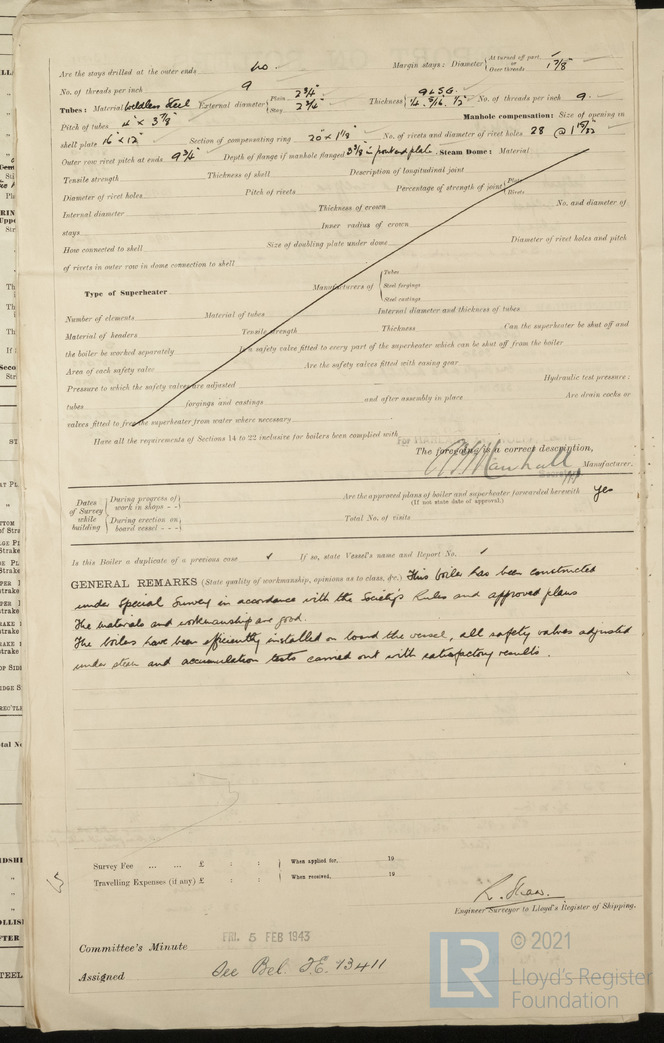 Are the stays drilled at the outer ends No. Margin stays: Diameter { At turned off part, ✓ or Over threads 1 7/8"
No. of threads per inch 9
Tubes: Material Weldless Steel External diameter { Plain 2 3/4" Stay 2 3/4" Thickness { 9 L.S.G. 1/4, 5/16, 1/2" No. of threads per inch 9.
Pitch of tubes 4" x 3 7/8" Manhole compensation: Size of opening in
shell plate 16" x 12" Section of compensating ring 20" x 1 1/8" No. of rivets and diameter of rivet holes 28 @ 1 5/32"
Outer row rivet pitch at ends 9 3/4" Depth of flange if manhole flanged 3 3/8" in front end plate. Steam Dome: Material
Tensile strength Thickness of shell Description of longitudinal joint
Diameter of rivet holes Pitch of rivets Percentage of strength of joint { Plate Rivets
Internal diameter Thickness of crown No. and diameter of
stays Inner radius of crown
How connected to shell Size of doubling plate under dome Diameter of rivet holes and pitch
of rivets in outer row in dome connection to shell
Type of Superheater Manufacturers of { Tubes Steel forgings Steel castings
Number of elements Material of tubes Internal diameter and thickness of tubes
Material of headers Tensile strength Thickness Can the superheater be shut off and
the boiler be worked separately Is a safety valve fitted to every part of the superheater which can be shut off from the boiler
Area of each safety valve Are the safety valves fitted with easing gear
Pressure to which the safety valves are adjusted Hydraulic test pressure:
tubes forgings and castings and after assembly in place Are drain cocks or
valves fitted to free the superheater from water where necessary
Have all the requirements of Sections 14 to 22 inclusive for boilers been complied with
The foregoing is a correct description,
Marshall Manufacturer.
Secretary
Dates of Survey while building { During progress of work in shops - - } { During erection on board vessel - - - }
Are the approved plans of boiler and superheater forwarded herewith Yes
(If not state date of approval.)
Total No. of visits
Is this Boiler a duplicate of a previous case ✓ If so, state Vessel's name and Report No. ✓
GENERAL REMARKS (State quality of workmanship, opinions as to class, &c.) This boiler has been constructed
under Special Survey in accordance with the Society's Rules and approved plans
The materials and workmanship are good.
The boilers have been efficiently installed on board the vessel, all safety valves adjusted
under steam and accumulation tests carried out with satisfactory results.
Survey Fee ... ... £ : : When applied for, 19
Travelling Expenses (if any) £ : : When received, 19
R. Shaw.
Engineer Surveyor to Lloyd's Register of Shipping.
Committee's Minute FRI. 5 FEB 1943
Assigned See Bel. F.E. 13411
LR © 2021
Lloyd's Register
Foundation